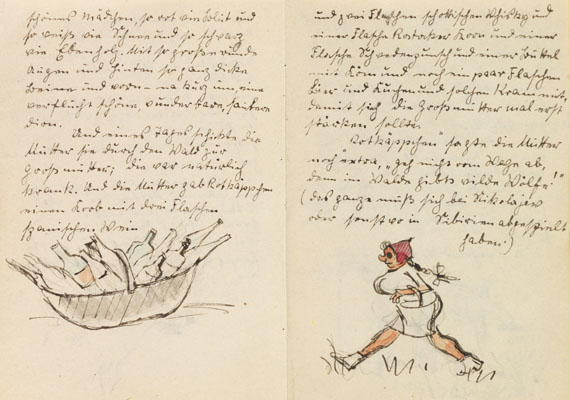 schönes Mädchen, so rot wie Blut und
so weiß wie Schnee und so schwarz
wie Ebenholz. Mit so große runde
Augen und hinten so ganz dicke
Beine und vorn – na kurz um, eine
verflicht schöne, wunderbare, saubere
Dirn.
Und eines Tages schickte die
Mutter sie durch den Wald zur
Großmutter; die war natürlich
krank. Und die Mutter gab Rotkäppchen
einen Korb mit drei Flaschen
spanischen Wein
und zwei Flaschen schottischen Whisky und
einer Flasche Rostocker Korn und einer
Flasche Schwedenpunsch und einer Buttel
mit Köm und noch ein paar Flaschen
Bier und Kuchen und solchen Kram mit,
damit sich die Großmutter mal erst
stärken sollte.
"Rotkäppchen" sagte die Mutter
noch extra, "geh nicht vom Wege ab,
denn im Walde gibts wilde Wölfe!"
(das ganze muß sich bei Nikolajew
oder sonst wo in Sibirien abgespielt
haben.)